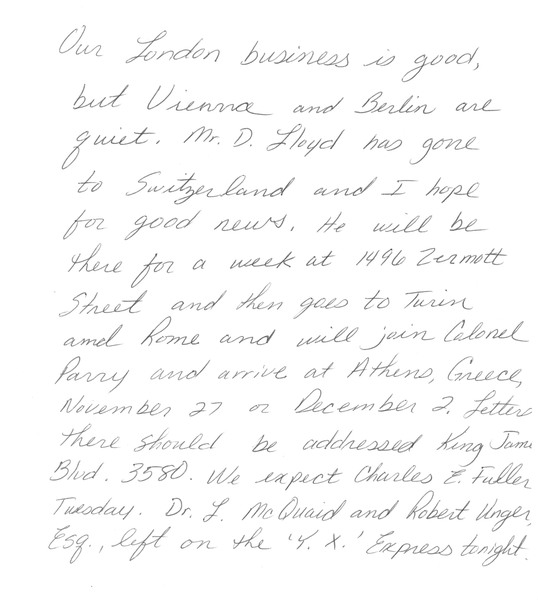 Our London business is good,
but Vienna and Berlin are
quiet. Mr. D. Lloyd has gone
to Switzerland and I hope
for good news. He will be
there for a week at 1496 Zermott
Street and then goes to Turin
and Rome and will join Colonel
Parry and arrive at Athens, Greece,
November 27 or December 2. Letters
there should be addressed King Jame
Blvd. 3580. We expect Charles E. Fuller
Tuesday. Dr. L. McQuaid and Robert Unger,
Esq., left on the 'Y. X.' Express tonight.